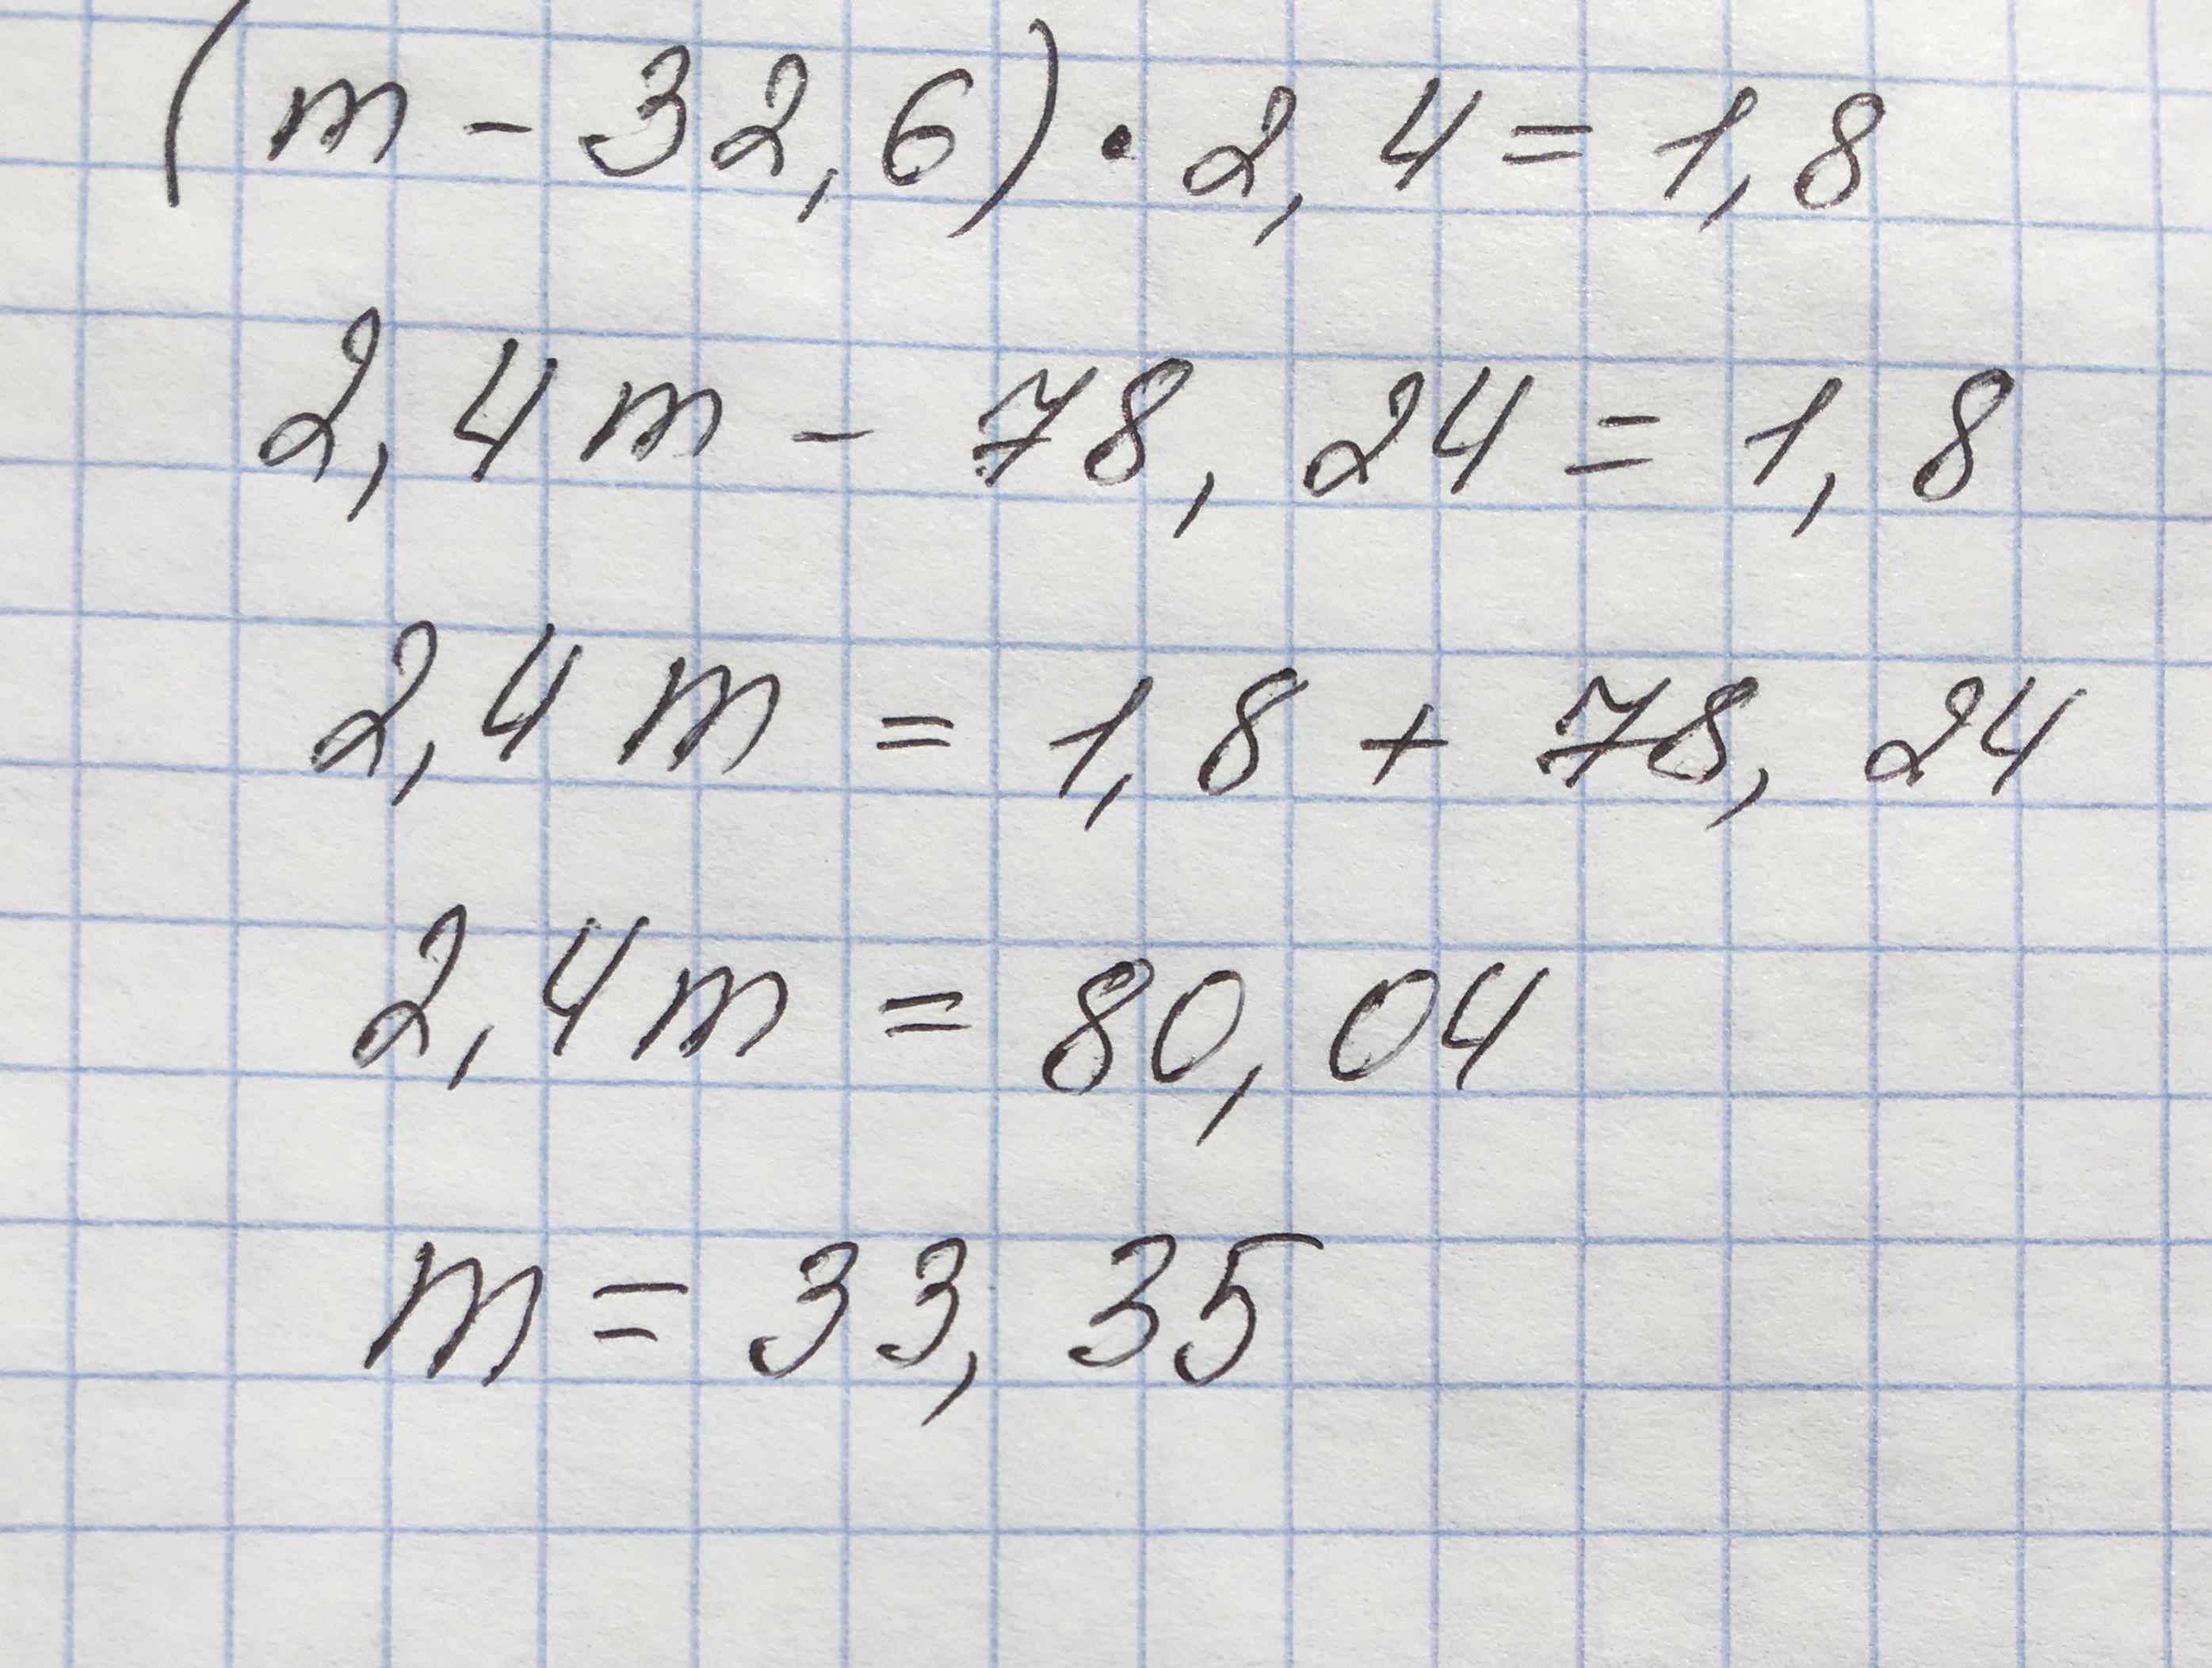 (m - 32,6) · 2,4 = 1,8
2,4m - 78,24 = 1,8
2,4m = 1,8 + 78,24
2,4m = 80,04
m = 33,35